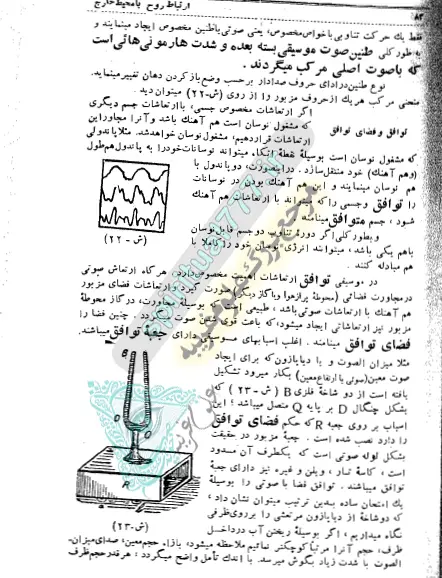 ۸۴ ارتباط روح با محیط خارج
فقط یك حرکت تناوبی باخواص مخصوص، یعنی صوتی باطنین مخصوص ایجاد مینمایند و
بطورکلی طنین صوت موسیقی بسته بعده و شدت هارمونی هائی است
که باصوت اصلی مرکب میگردند.
نوع طنین درادای حروف صدادار برحسب وضع باز کردن دهان تغییر مینماید.
منحنی مرکب هریك ازحروف مزبور را از روی (ش-۲۲) میتوان دید.
توافق و فضای توافق
اگر ارتعاشات مخصوص جسمی، باارتعاشات جسم دیگری
که مشغول نوسان است هم آهنگ باشد وآنرا مجاور این
ارتعاشات قراردهیم، مشغول نوسان خواهدشد. مثلا پاندولی
که مشغول نوسان است بوسیلهٔ نقطهٔ اتکاء میتواند نوسانات خودرا به پاندول هم طول
(وهم آهنگ) خود منتقل سازد. دراینصورت، دو پاندول با
هم نوسان مینمایند و این هم آهنگ بودن در نوسانات
را توافق وجسمی را که میتواند با ارتعاشات هم آهنك
شود، جسم متوافق مینامند
(ش-۲۲)
و بطورکلی اگر دورهٔ تناوب دو جسم قابل نوسان
باهم یکی باشد، میتوانند انرژی نوسان خود را کاملا با
هم مبادله کنند.
در موسیقی توافق ارتعاشات اهمیت مخصوص دارد. هرگاه ارتعاش صوتی
درمجاورت فضائی (محوطهٔ پرازهوا ویا گاز دیگر) صورت گیرد و ارتعاشات فضای مزبور
هم آهنك با ارتعاشات صوتی باشد، طبیعی است که بوسیلهٔ مجاورت، درگاز محوطهٔ
مزبور نیز ارتعاشاتی ایجاد میشود، که باعث قوی شدن صوت میگردد. چنین فضا را
فضای توافق مینامند. اغلب اسبابهای موسیقی دارای جعبهٔ توافق میباشند.
مثلا میزان الصوت و یا دیاپازون که برای ایجاد
صوت معین (صوتی با ارتفاع معین) بکار میرود تشکیل
یافته است از دو شاخهٔ فلزی B (ش-۲۳) که
بشکل چنگال D بر پایه Q متصل میباشد؛ این
اسباب بر روی جعبه R که حکم فضای توافق
را دارد نصب شده است. جعبهٔ مزبور در حقیقت
بشکل لوله صوتی است که یکطرف آن مسدود
است، کاسهٔ تار، ویلن و غیره نیز دارای جعبهٔ
توافق میباشند. توافق فضا با صوتی را بوسیلهٔ
B
D
Q
R
(ش-۲۳)
یك امتحان ساده بدین ترتیب میتوان نشان داد،
که دوشاخهٔ از دیاپازون مرتعشی را برروی ظرفی
نگاه میداریم، اگر بوسیلهٔ ریختن آب در داخل
ظرف، حجم آنرا مرتباً کوچکتر نمائیم ملاحظه میشود، بازاء حجم معین، صدای میزان-
الصوت با شدت زیاد بگوش میرسد. با اندك تأمل واضح میگردد؛ هر قدر حجم ظرف